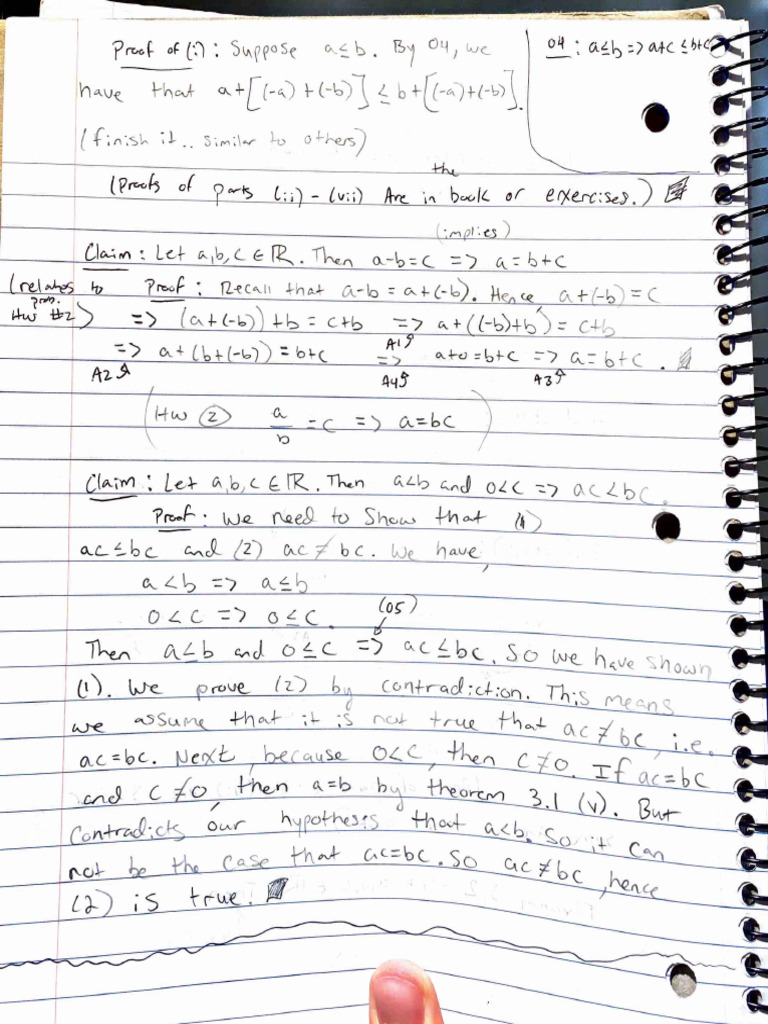 Proof of (i): Suppose a≤b. By O4, we
O4: a≤b => a+c ≤ b+c
have that a+[(-a)+(-b)] ≤ b+[(-a)+(-b)].
(finish it.. similar to others)
(Proofs of parts (ii)-(vii) Are in the book or exercises.)
(implies)
Claim: Let a,b,c ∈ ℝ. Then a-b=c => a=b+c
(relates to prob. HW #2)
Proof: Recall that a-b = a+(-b). Hence, a+(-b)=c
=> (a+(-b))+b = c+b => a+((-b)+b) = c+b
A1↑
=> a+(b+(-b)) = b+c => a+0=b+c => a=b+c.
A2↑ A4↑ A3↑
(HW ② a/b = c => a=bc)
Claim: Let a,b,c ∈ ℝ. Then a<b and 0<c => ac<bc.
Proof: We need to show that (1)
ac≤bc and (2) ac≠bc. We have,
a<b => a≤b
0<c => 0≤c.
(O5)
Then a≤b and 0≤c => ac≤bc. So we have shown
(1). We prove (2) by contradiction. This means
we assume that it is not true that ac≠bc, i.e.
ac=bc. Next, because 0<c, then c≠0. If ac=bc
and c≠0, then a=b by theorem 3.1 (v). But
contradicts our hypothesis that a<b. So it can
not be the case that ac=bc. So ac≠bc, hence
(2) is true.